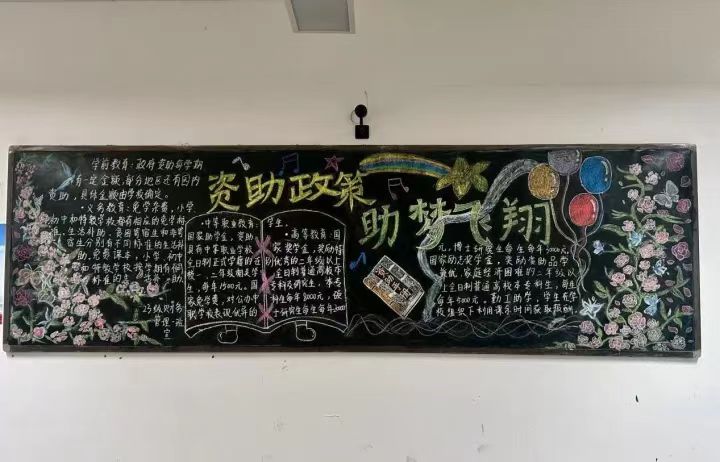 资助政策
助梦飞翔
学前教育:政府资助每学期
有一定金额,部分地区还有园内
资助,具体金额由学校确定。
·义务教育:免学杂费,小学
初中和特教学校都有相应的免学杂
·中等职业教育:
国家助学金,资助
具有中等职业学校
全日制正式学籍的在
校一、二年级涉农
每年1500元。国
家免学费,对公办中
职学校表现优异的
学生。
·高等教育:国
家奖学金,奖励特
优秀的二年级以上
全日制普通高校本
专科及研究生,本专
科生每年8000元,硕
士研究生每生每年20000
元,博士研究生每生每年30000元。
国家励志奖学金,奖励品学
兼优、家庭经济困难的二年级以上
全日制普通高校本专科生,每生
每年5000元。勤工助学,学生在学
校组织下利用课余时间获取报酬。
23级财务
管理一班
宣